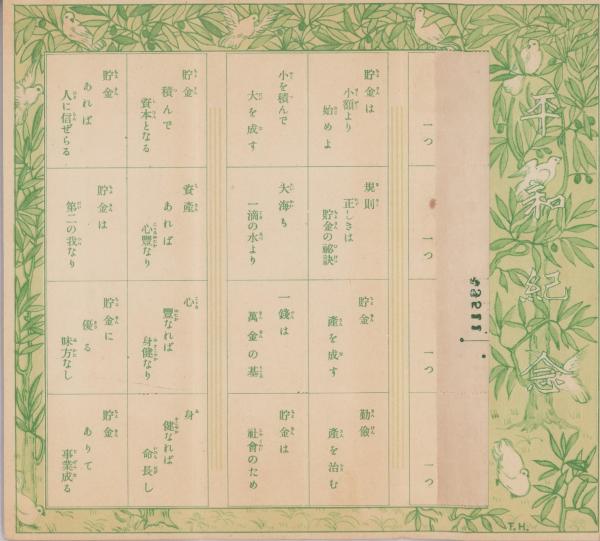 平和紀念
一つ
一つ
一つ
一つ
貯金は
小額より
始めよ
規則
正しきは
貯金の祕訣
貯金
産を成す
勤儉
産を治む
小を積んで
大を成す
大海も
一滴の水より
一錢は
萬金の基
貯金は
社會のため
貯金
積んで
資本となる
資産
あれば
心豐なり
心
豐なれば
身健なり
身
健なれば
命長し
貯金
あれば
人に信ぜらる
貯金は
第二の我なり
貯金に
優る
味方なし
貯金
ありて
事業成る
T.H.